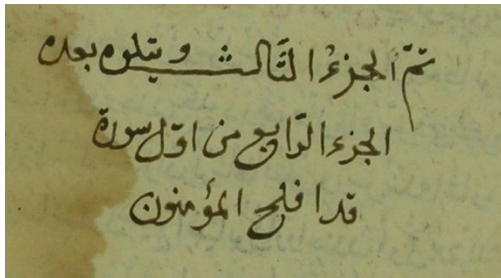 تمّ الجزءُ الثَّالث ويتلوه بعده
الجزء الرّابع من اوّل سورة
قد افلح المؤمنون